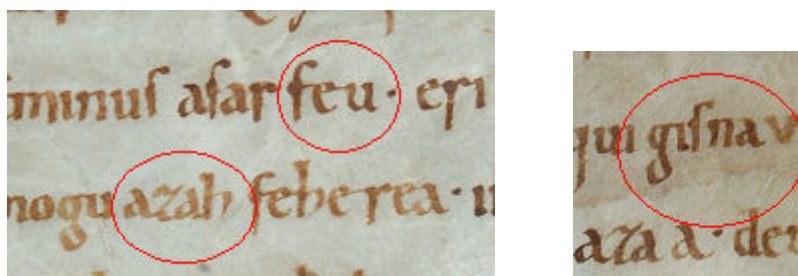 minus asar feu · eri
nogu azah feherea · u
qui gisna v
aza a · deu